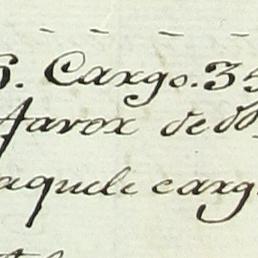 S. Cargo. 35
favor de
aquele carg